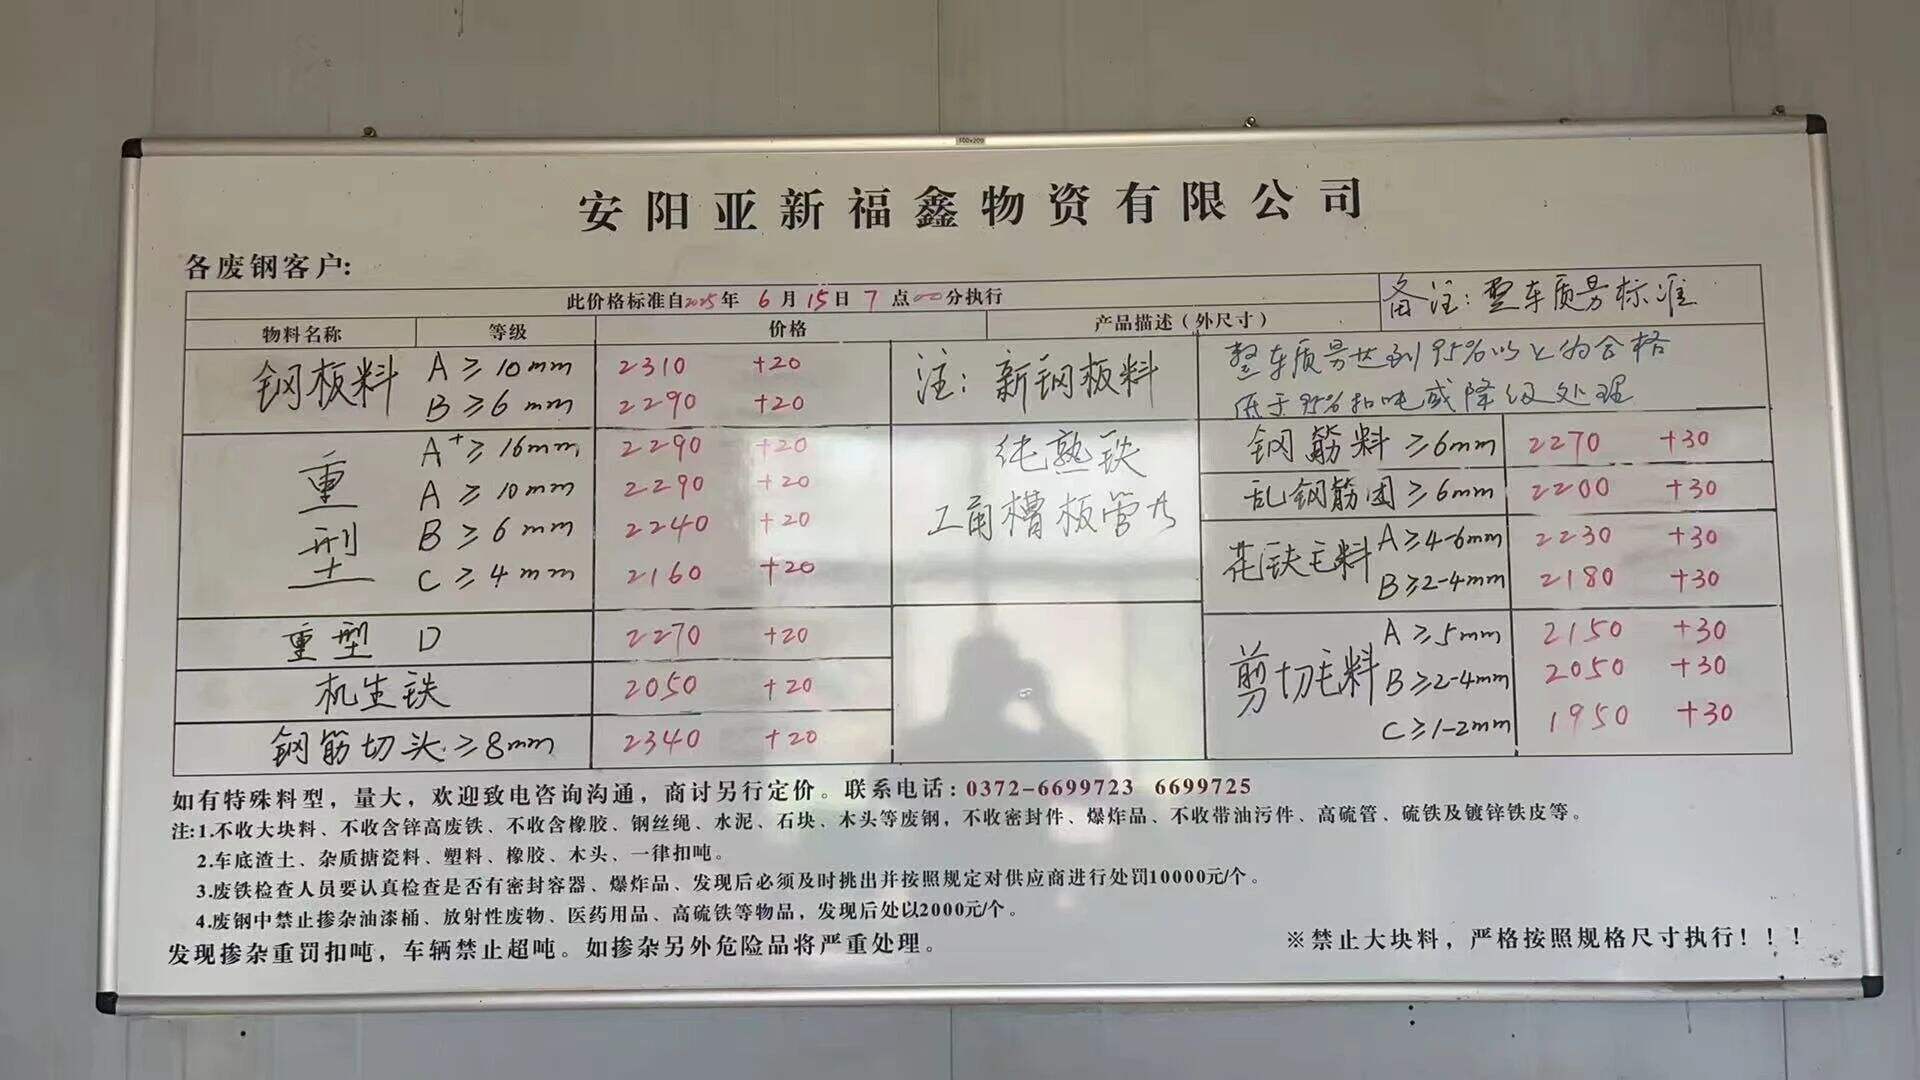 100×200
安阳亚新福鑫物资有限公司
各废钢客户:
此价格标准自2025年 6月15日7点00分执行
备注:整车质量标准
物料名称 等级 价格 产品描述(外尺寸)
钢板料 A≥10mm 2310 +20
B≥6mm 2290 +20
注:新钢板料
整车质量达到95%以上为合格
低于95%扣吨或降级处理
重型 A+≥16mm 2290 +20
A≥10mm 2290 +20
B≥6mm 2240 +20
C≥4mm 2160 +20
纯熟铁
工角槽板管
钢筋料≥6mm 2270 +30
乱钢筋团≥6mm 2200 +30
花铁毛料 A≥4-6mm 2230 +30
B≥2-4mm 2180 +30
重型 D 2270 +20
机生铁 2050 +20
钢筋切头≥8mm 2340 +20
剪切毛料 A≥5mm 2150 +30
B≥2-4mm 2050 +30
C≥1-2mm 1950 +30
如有特殊料型，量大，欢迎致电咨询沟通，商讨另行定价。联系电话:0372-6699723 6699725
注:1.不收大块料、不收含锌高废铁、不收含橡胶、钢丝绳、水泥、石块、木头等废钢，不收密封件、爆炸品、不收带油污件、高硫管、硫铁及镀锌铁皮等。
2.车底渣土、杂质搪瓷料、塑料、橡胶、木头、一律扣吨。
3.废铁检查人员要认真检查是否有密封容器、爆炸品、发现后必须及时挑出并按照规定对供应商进行处罚10000元/个。
4.废钢中禁止掺杂油漆桶、放射性废物、医药用品、高硫铁等物品，发现后处以2000元/个。
发现掺杂重罚扣吨，车辆禁止超吨。如掺杂另外危险品将严重处理。
※禁止大块料，严格按照规格尺寸执行！！！